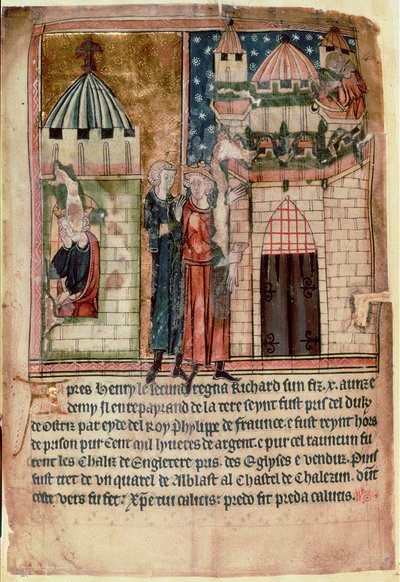 pres Henry le secund regna Richard sun fiz .x. aunz e
demy si en repayrand de la tere seynt fust pris del duk
de Ostriz par eyde del Roy Phylipe de Fraunce. e fust reynt hors
de prison pur Cent mil lyveres de argent. e pur cel raunçun fu
rent les Chaliz de Engletere pris. des Eglyses e venduz. Puis
fust tret de un quarel de Alblast al Chastel de Chalezun. dunt
ceste vers fu fet. Xpe tui calicis. predo fit preda calucis.